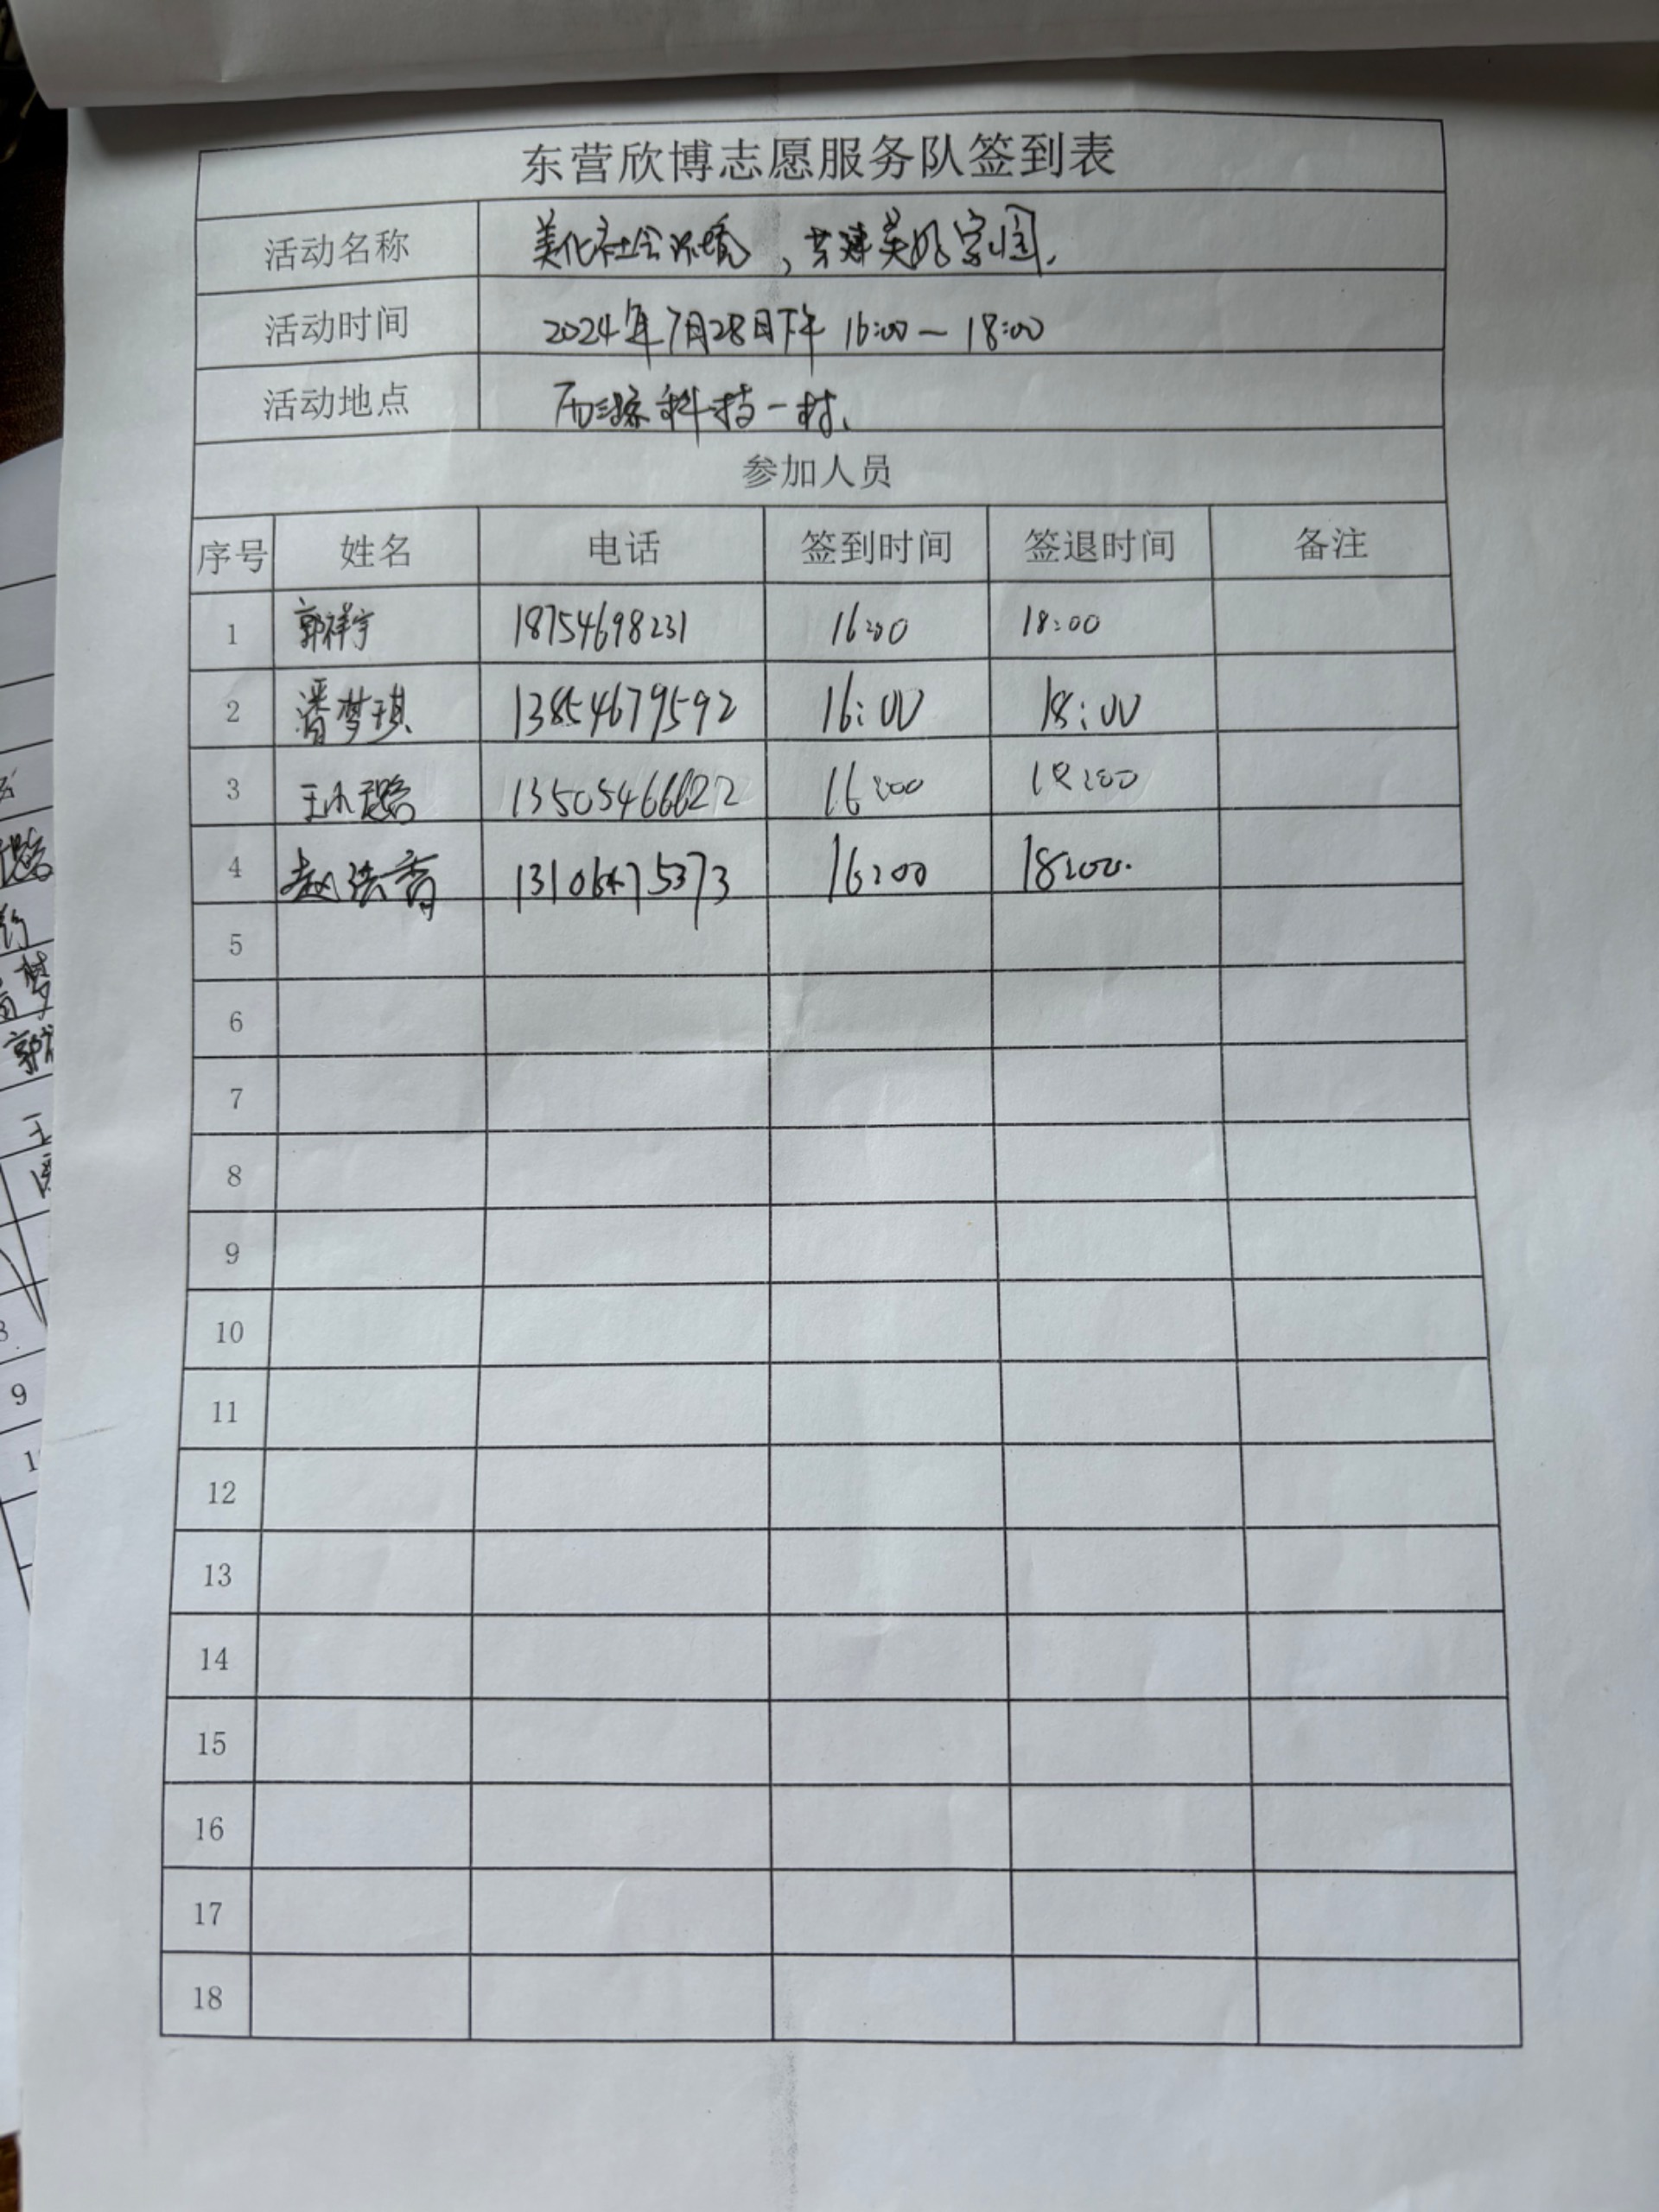 东营欣博志愿服务队签到表
活动名称 美化社会环境，共建美好家园.
活动时间 2024年7月28日下午 16:00—18:00
活动地点 科技一村.
参加人员
序号 姓名 电话 签到时间 签退时间 备注
1 郭祥宇 18754698231 16:00 18:00
2 潘梦琪 13854679592 16:00 18:00
3 王 13505466622 16:00 18:00
4 赵洪香 16:00 18:00.
5
6
7
8
9
10
11
12
13
14
15
16
17
18